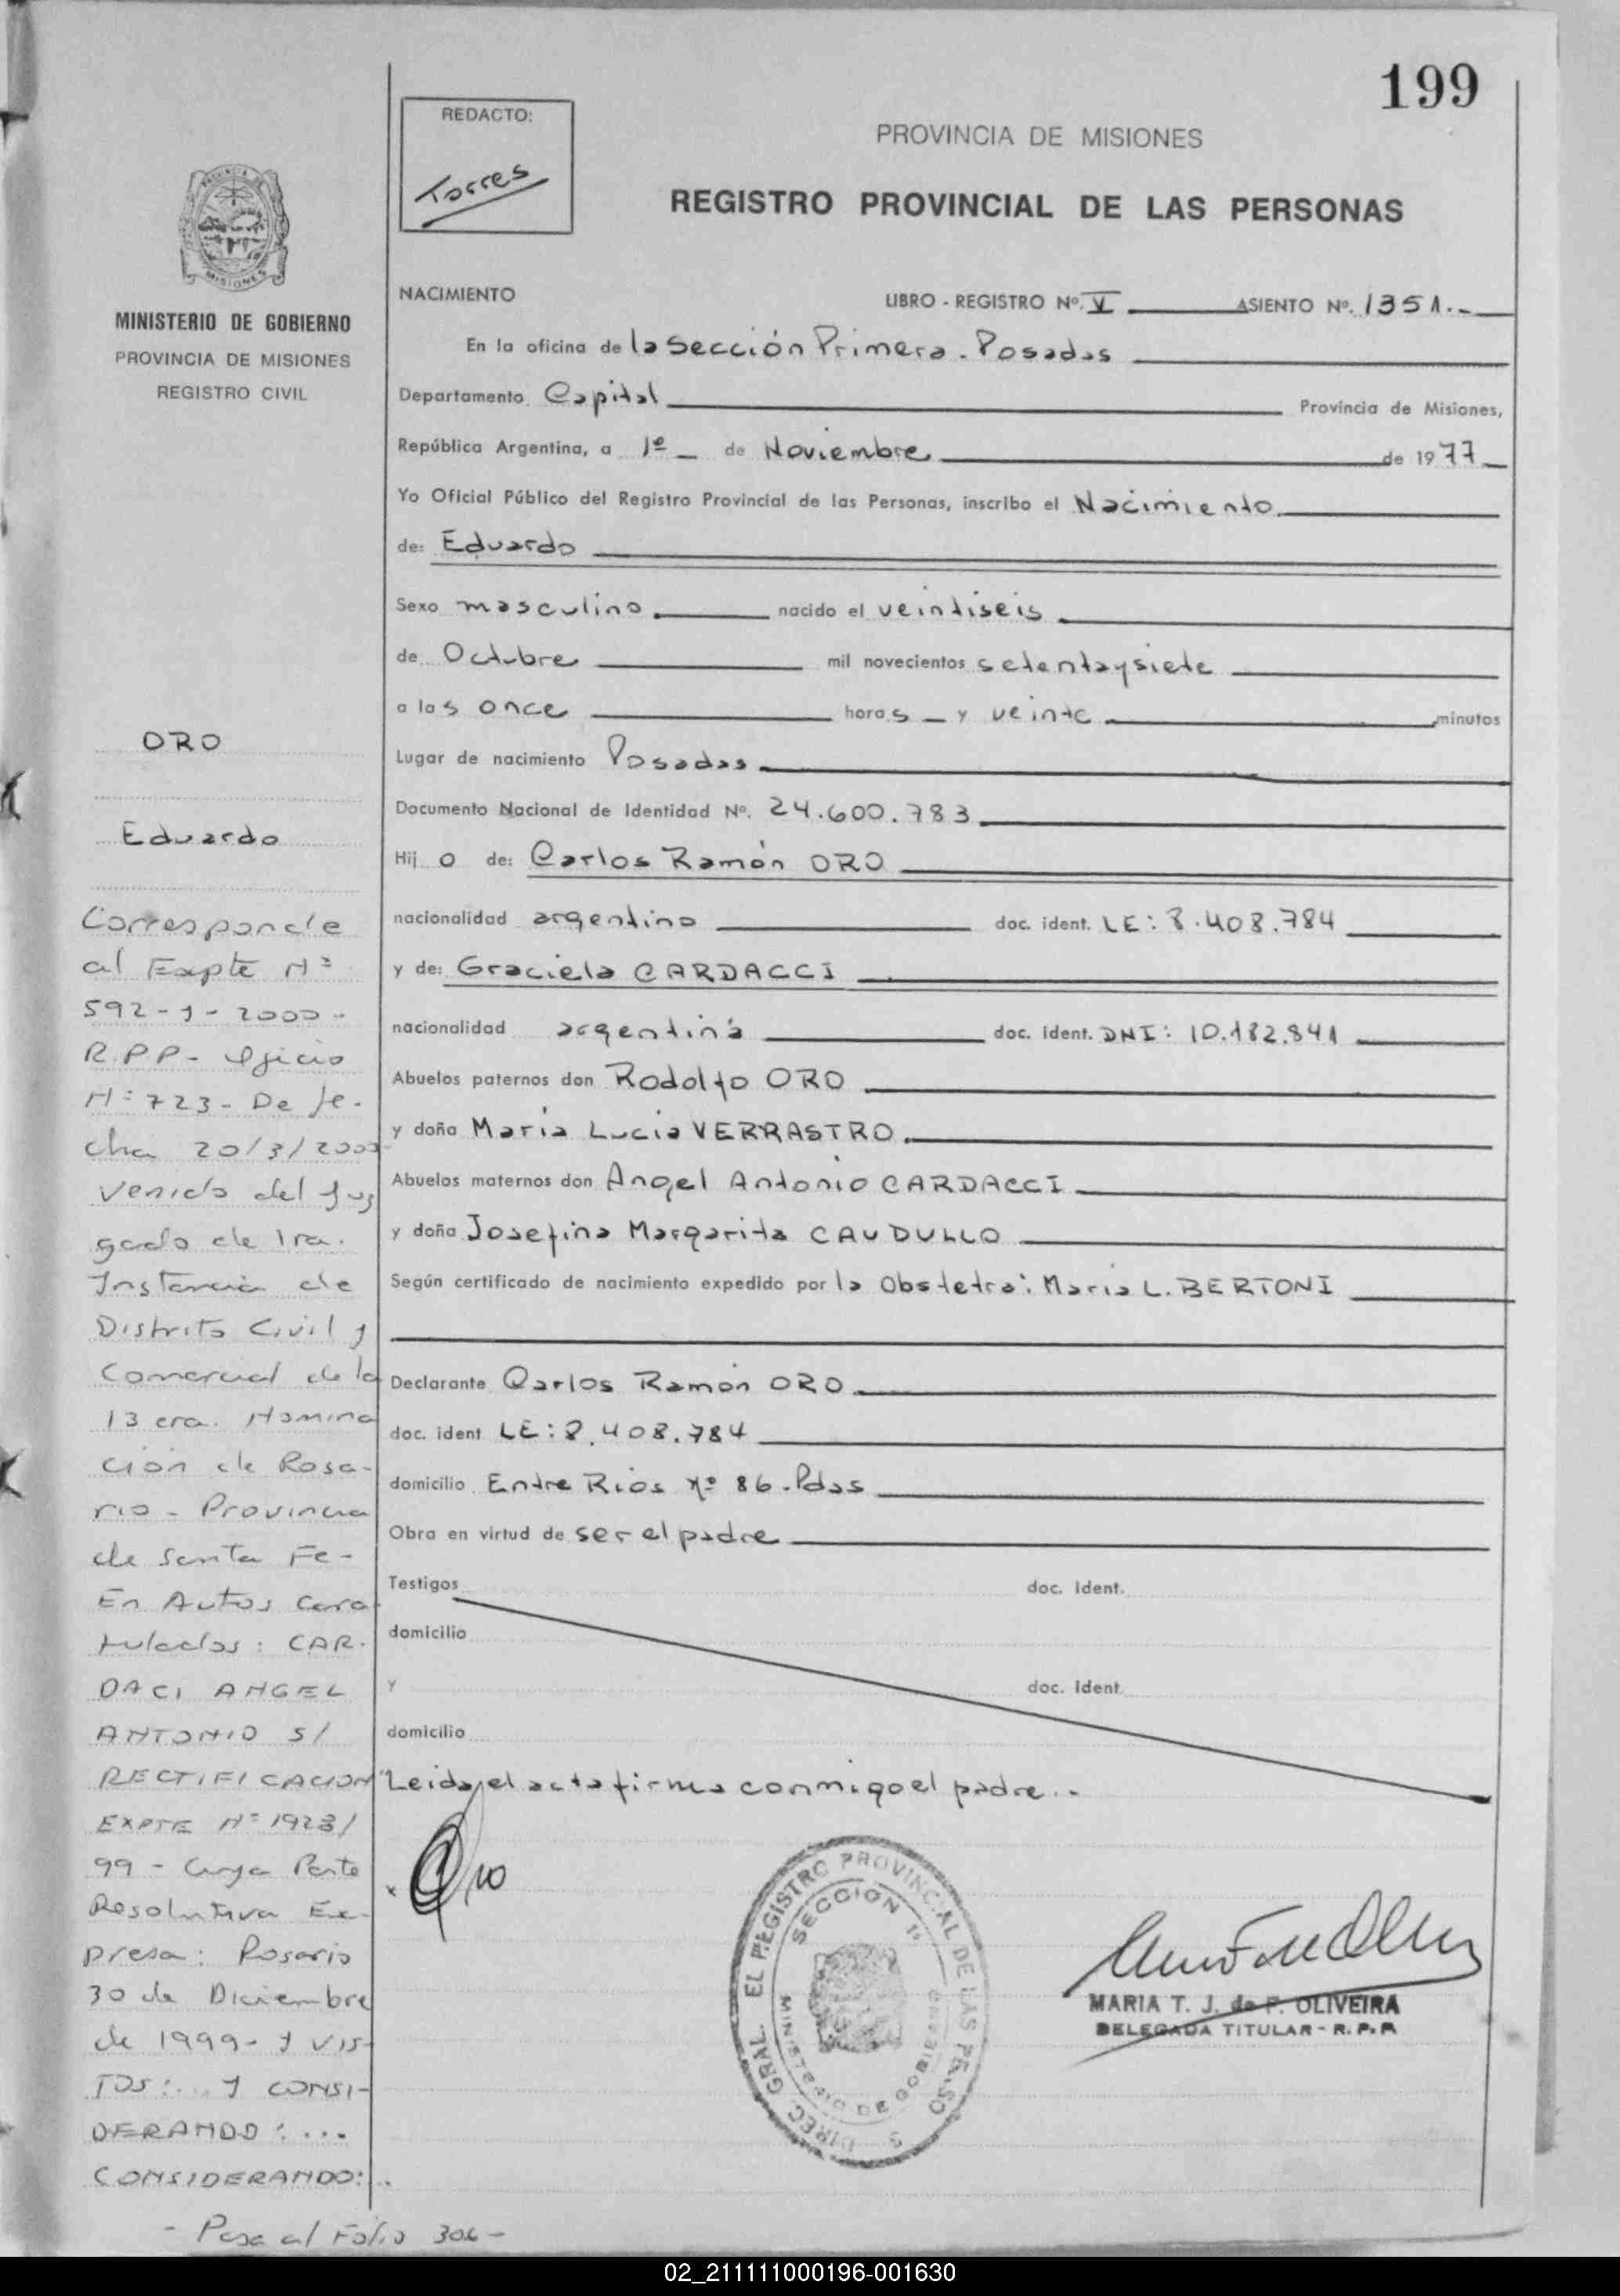 199
REDACTO:
Torres
PROVINCIA DE MISIONES
REGISTRO PROVINCIAL DE LAS PERSONAS
MISIONES
MINISTERIO DE GOBIERNO
PROVINCIA DE MISIONES
REGISTRO CIVIL
NACIMIENTO LIBRO - REGISTRO Nº. V ASIENTO Nº. 1351.-
En la oficina de la Sección Primera. Posadas
Departamento Capital Provincia de Misiones,
República Argentina, a 1º de Noviembre de 1977
Yo Oficial Público del Registro Provincial de las Personas, inscribo el Nacimiento
de: Eduardo
Sexo masculino. nacido el veintiseis
de Octubre mil novecientos setentaysiete
a las once horas y veinte minutos
Lugar de nacimiento Posadas
Documento Nacional de Identidad Nº. 24.600.783
Hijo de: Carlos Ramón ORO
nacionalidad argentino doc. ident. LE: 8.408.784
y de: Graciela CARDACCI
nacionalidad argentina doc. ident. DNI: 10.182.841
Abuelos paternos don Rodolfo ORO
y doña María Lucia VERRASTRO.
Abuelos maternos don Angel Antonio CARDACCI
y doña Josefina Margarita CAUDULLO
Según certificado de nacimiento expedido por la Obstetra: María L. BERTONI
Declarante Carlos Ramón ORO
doc. ident. LE: 8.408.784
domicilio Entre Rios Nº 86. Pdas
Obra en virtud de ser el padre
Testigos doc. ident.
domicilio
y doc. ident.
domicilio
Leida el acta firma conmigo el padre.-
x Oro
DIREC. GRAL. EL REGISTRO PROVINCIAL DE LAS PERSO
SECCION 1º
MINISTERIO DE GOBIERNO
MARIA T. J. de P. OLIVEIRA
DELEGADA TITULAR - R.P.P.
ORO
Eduardo
Corresponde
al Expte Nº
592-1-2000-
R.P.P- Oficio
Nº 723- De fe-
cha 20/3/2000
Venido del Juz
gado de 1ra.
Instancia de
Distrito Civil y
Comercial de la
13 era. Nomina
ción de Rosa-
rio - Provincia
de Santa Fe-
En Autos Cara
tulados: CAR-
DACI ANGEL
ANTONIO S/
RECTIFICACION
EXPTE Nº 1923/
99 - Cuya Parte
Resolutiva Ex-
presa: Rosario
30 de Diciembre
de 1999- Y VIS-
TOS:... Y CONSI-
DERANDO:...
CONSIDERANDO:..
- Pasa al Folio 306 -
02_211111000196-001630